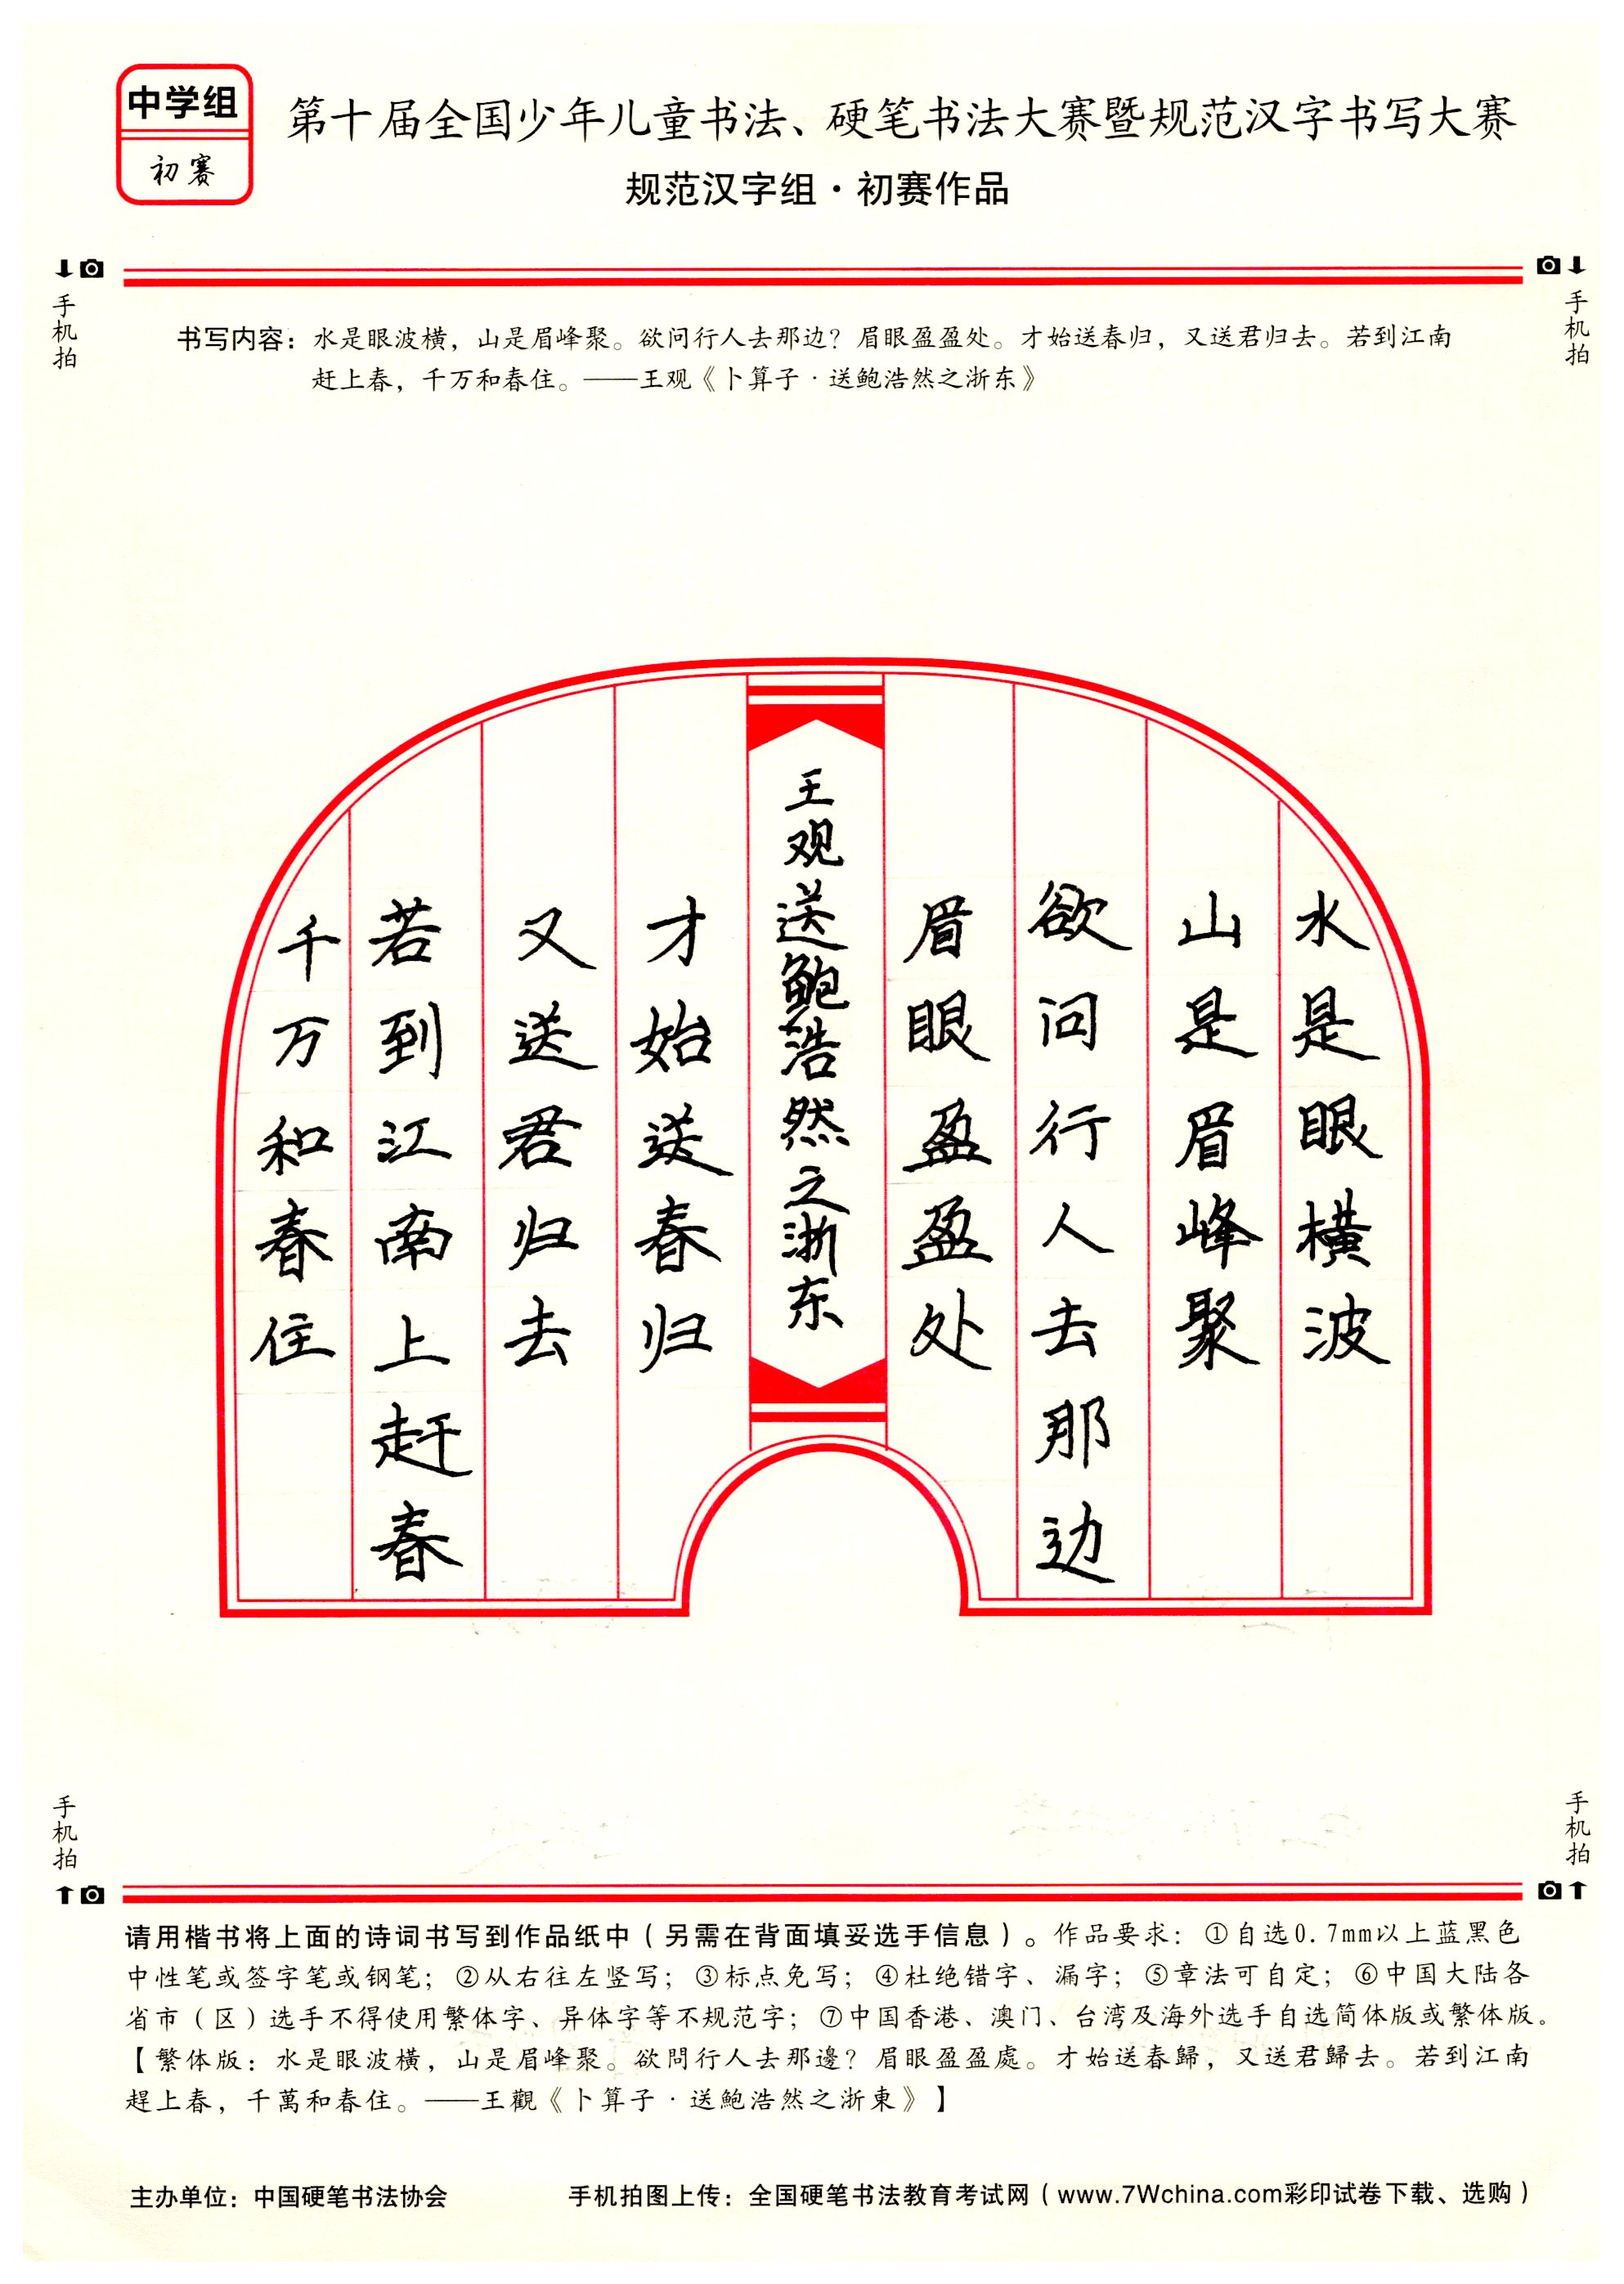 中学组
初赛
第十届全国少年儿童书法、硬笔书法大赛暨规范汉字书写大赛
规范汉字组·初赛作品
手机拍
手机拍
书写内容：水是眼波横，山是眉峰聚。欲问行人去那边？眉眼盈盈处。才始送春归，又送君归去。若到江南
赶上春，千万和春住。——王观《卜算子·送鲍浩然之浙东》
水是眼横波
山是眉峰聚
欲问行人去那边
眉眼盈盈处
王观送鲍浩然之浙东
才始送春归
又送君归去
若到江南上赶春
千万和春住
手机拍
手机拍
请用楷书将上面的诗词书写到作品纸中（另需在背面填妥选手信息）。作品要求：①自选0.7mm以上蓝黑色
中性笔或签字笔或钢笔；②从右往左竖写；③标点免写；④杜绝错字、漏字；⑤章法可自定；⑥中国大陆各
省市（区）选手不得使用繁体字、异体字等不规范字；⑦中国香港、澳门、台湾及海外选手自选简体版或繁体版。
【繁体版：水是眼波橫，山是眉峰聚。欲問行人去那邊？眉眼盈盈處。才始送春歸，又送君歸去。若到江南
趕上春，千萬和春住。——王觀《卜算子·送鮑浩然之浙東》】
主办单位：中国硬笔书法协会
手机拍图上传：全国硬笔书法教育考试网（www.7Wchina.com彩印试卷下载、选购）